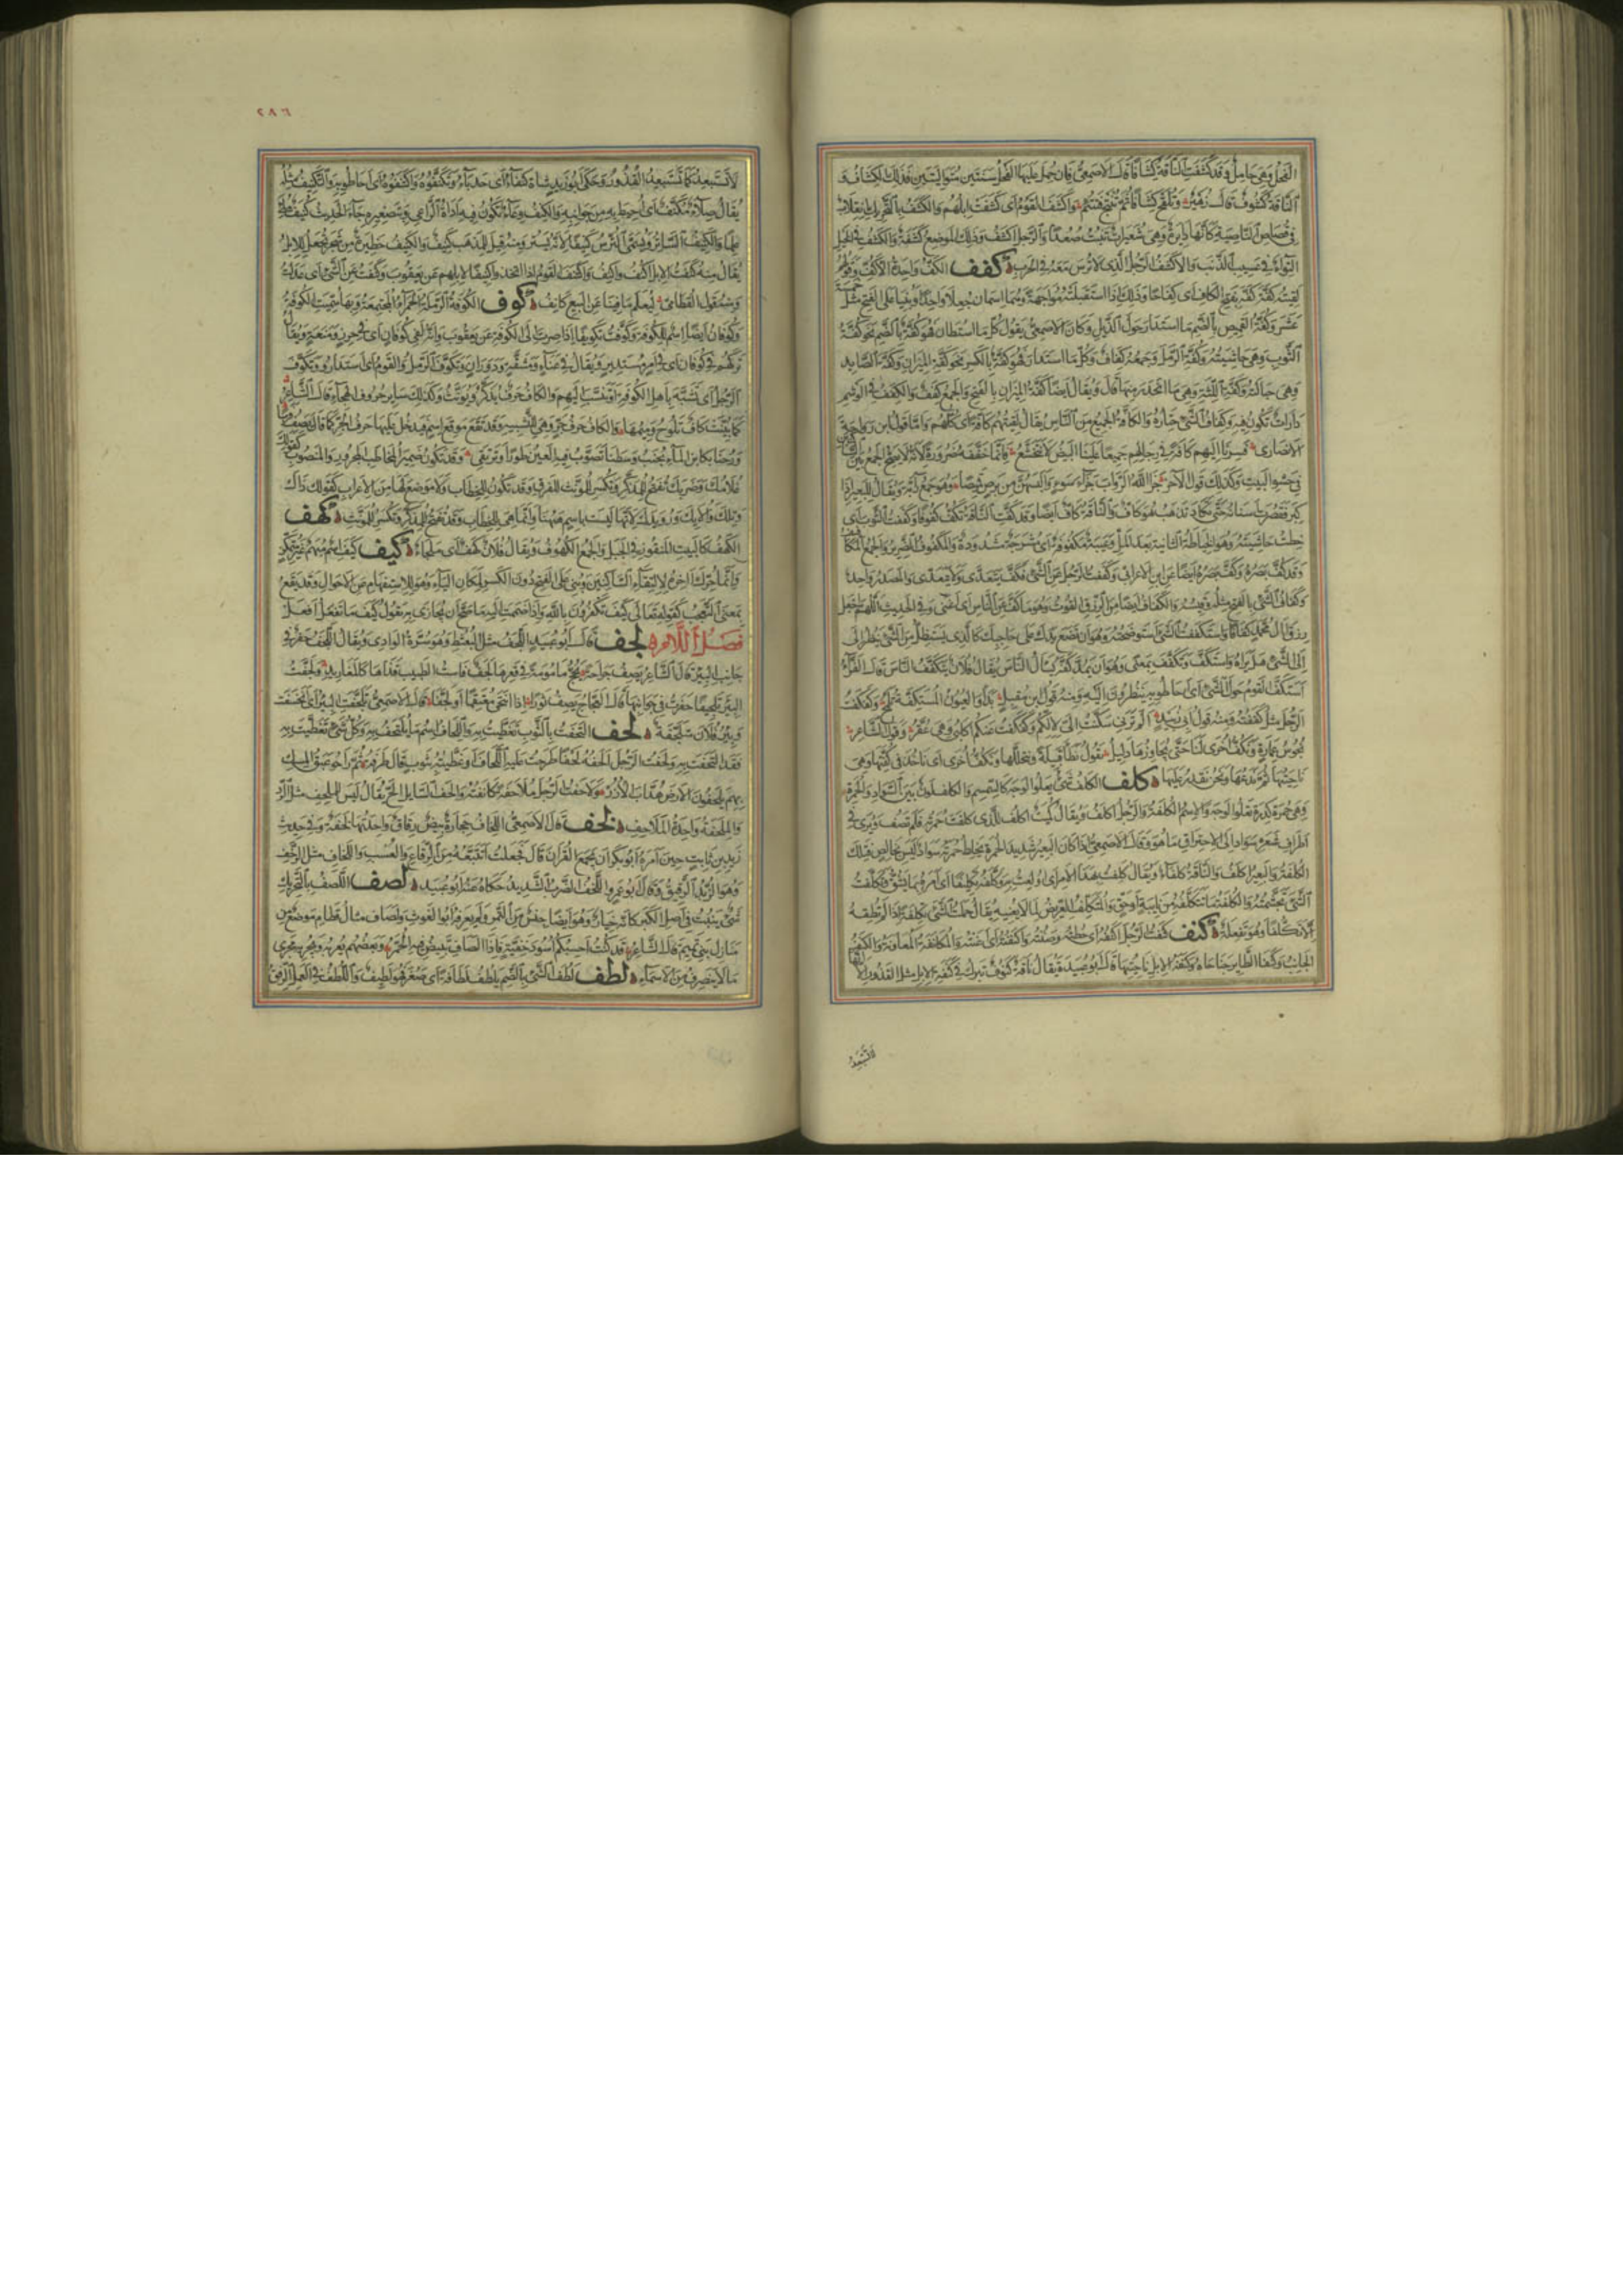 الفحل وهي حامل وقد كشفت الناقة كشافا قال الاصمعي فان حمل عليها الفحل سنتين متواليتين فذلك الكشاف و
الناقة كشوف قال زهير وتلقح كشافا ثم تنتج فتتئم واكشف القوم اى كشفت ابلهم والكشف بالتحريك انقلاب
في قصاص الناصية كأنها دايرة وهي شعيرات تنبت صعدا والرجل اكشف وذلك الموضع كشفة والكشف في الخيل
التواء في عسيب الذنب والاكشف الرجل الذى لا ترس معه في الحرب كفف الكف واحدة الاكف وقولهم
لقيته كفة كفة بفتح الكاف اى كفاحا وذلك اذا استقبلته مواجهة وهما اسمان جعلا واحدا وبنيا على الفتح مثل خمسة
عشر وكفة القميص بالضم ما استدار حول الذيل وكان الاصمعي يقول كل ما استطال فهو كفة بالضم نحو كفة
الثوب وهي حاشيته وكفة الرمل وجمعه كفاف وكل ما استدار فهو كفة بالكسر نحو كفة الميزان وكفة الصايد
وهي حبالته وكفة اللثة وهي ما انحدر منها قال ويقال ايضا كفة الميزان بالفتح والجمع كفف والكفف في الوشم
دارات تكون فيه وكفاف الشئ حتاره والكافة الجميع من الناس يقال لقيتهم كافة اى كلهم واما قول ابن رواحة
الانصارى فسرنا اليهم كافة في رحالهم جميعا علينا البيض لا نتخشع فانما خففه ضرورة لانه لا يصح الجمع بين الساكنين
في حشو البيت وكذلك قول الآخر جزا الله الرواب جزاء سوء والبسهن من برص قميصا وهو جمع رابة ويقال للبعير اذا
كبر فقصرت اسنانه حتى تكاد تذهب هو كاف والناقة كاف ايضا وقد كفت الناقة تكف كفوفا وكففت الثوب اى
خطت حاشيته وهو الخياطة الثانية بعد الشل وعيبة مكفوفة اى مشرجة مشدودة والمكفوف الضرير والجمع المكافيف
وقد كف بصره وكف بصره ايضا عن ابن الاعرابي وكففت الرجل عن الشئ فكف يتعدى ولا يتعدى والمصدر واحد
وكفاف الشئ بالفتح مثله وقيسه والكفاف ايضا من الرزق القوت وهو ما كف عن الناس اى اغنى وفي الحديث اللهم اجعل
رزق آل محمد كفافا واستكففت الشئ استوضحته وهو ان تضع يدك على حاجبك كالذى يستظل من الشئ ينظر الى
الى الشئ هل يراه واستكف وتكفف بمعنى وهو ان يمد كفه يسأل الناس يقال فلان يتكفف الناس قال الفراء
استكف القوم حول الشئ اى احاطوا به ينظرون اليه ومنه قول ابن مقبل بدا والعيون المستكفة تلمح وكفكفت
الرجل مثل كففته ومنه قول ابي زبيد الم ترني سكنت الي لالكم وكفكفت عنكم اكلبي وهي عقر وقول الشاعر
نجوس عمارة ونكف اخرى لنا حتى يجاوزها دليل يقول نطأ قبيلة ونتخللها ونكف اخرى اى ناخذ في كفتها وهي
ناحيتها ثم ندعها ونحن نقدر عليها كلف الكلف شئ يعلو الوجه كالسمسم والكلف لون بين السواد والحمرة
وهي حمرة كدرة تعلو الوجه والاسم الكلفة والرجل اكلف ويقال كميت اكلف للذى كلفت حمرته فلم تصف وترى في
اطراف شعره سوادا الى الاحتراق ما هو وقال الاصمعي اذا كان البعير شديد الحمرة يخلط حمرته سواد ليس بخالص فتلك
الكلفة والبعير اكلف والناقة كلفاء ويقال كلفت بهذا الامر اى اولعت به وكلفه تكليفا اى امره بما يشق وتكلفت
الشئ تجشمته والكلفة ما تتكلفه من نايبة او حق والمتكلف العريض لما لا يعنيه يقال حملت الشئ تكلفة اذا لم تطقه
الا تكلفا وهو تفعلة كنف كنفت الرجل اكنفه اى حطته وصنته واكنفته اى اعنته والمكانفة المعاونة والكنف
الجانب وكنفا الطاير جناحاه وكنفة الابل ناحيتها قال ابو عبيدة يقال ناقة كنوف تبرك في كنفة الابل مثل القذور الا انها
لا تستبعد
٢٨٦
لا تستبعد كما تستبعد القذور وحكى ابو زيد شاة كنفاء اى حدباء وتكنفوه واكتنفوه اى احاطوا به والتكنيف مثله
يقال صلاء مكنف اى احيط به من جوانبه والكنف وعاء تكون فيه اداة الراعي وتصغيره جاء الحديث كنيف ملئ
علما والكنيف الساتر ويسمى الترس كنيفا لانه يستر ومنه قيل للمذهب كنيف والكنيف حظيرة من شجر تجعل للابل
يقال منه كنفت الابل اكنف واكنف واكتنف القوم اذا اتخذوا كنيفا لابلهم عن يعقوب وكنفت عن الشئ اى عدلت
ومنه قول القطامي ليعلم ما فينا عن البيع كانف كوف الكوفة الرملة الحمراء المجتمعة وبها سميت الكوفة
وكوفان ايضا اسم للكوفة وكوفت تكويفا اذا صرت الى الكوفة عن يعقوب وانه لفي كوفان اى في حرز ومنعة ويقال
تركتهم في كوفان اى في امر مستدير ويقال في عناء ومشقة ودوران وتكوف الرمل والقوم اى استداروا وتكوف
الرجل اى تشبه باهل الكوفة او ينتسب اليهم والكاف حرف يذكر ويؤنث وكذلك ساير حروف الهجاء قال الشاعر
كما بينت كاف تلوح وميمها والكاف حرف جر وهي للتشبيه وقد تقع موقع اسم فيدخل عليها حرف الجر كما قال يصف فرسا
ورحنا بكابن الماء يجنب وسطنا تصوب فيه العين طورا وترتقي وقد تكون ضمير المخاطب المجرور والمنصوب كقولك
غلامك وضربك تفتح للمذكر وتكسر للمؤنث للفرق وقد تكون للخطاب ولا موضع لها من الاعراب كقولك ذاك
وتلك واولئك ورويدك لانها ليست باسم ههنا وانما هي للخطاب وقد تفتح للمذكر وتكسر للمؤنث كهف
الكهف كالبيت المنقور في الجبل والجمع الكهوف ويقال فلان كهف اى ملجاء كيف كيف اسم مبهم غير متمكن
وانما حرك اخره لالتقاء الساكنين وبني على الفتح دون الكسر لمكان الياء وهو للاستفهام عن الاحوال وقد يقع
بمعنى التعجب كقوله تعالى كيف تكفرون بالله واذا ضممت اليه ما صح ان يجازى به تقول كيف ما تفعل افعل
فصل اللام لجف قال ابو عبيد اللجف مثل البعثط وهو سرة الوادى ويقال اللجف حفر في
جانب البئر قال الشاعر يصف جراحة يحج مامومة في قعرها لجف فاست الطبيب قذاها كالمغاريد ولجفت
البئر تلجيفا حفرت في جوانبها قال العجاج يصف ثورا اذا انتحى معتقما او لجفا قال الاصمعي تلجفت البئر اى انخسفت
وبئر فلان متلجفة لحف التحفت بالثوب تغطيت به واللحاف اسم ما يلتحف به وكل شئ تغطيت به
فقد التحفت به ولحفت الرجل الحفه لحفا طرحت عليه اللحاف او غطيته بثوب قال طرفة ثم راحوا عبق المسك
بهم يلحفون الارض هداب الازر ولاحفت الرجل ملاحفة كانفته والحف السايل الح يقال ليس للملحف مثل الرد
والملحفة واحدة الملاحف لخف قال الاصمعي اللخاف حجارة بيض رقاق واحدتها لخفة وفي حديث
زيد بن ثابت حين امره ابو بكر ان يجمع القرآن قال فجعلت اتتبعه من الرقاع والعسب واللخاف مثل الرخف
وهو الزبد الرقيق وقال ابو عمرو اللخف الضرب الشديد حكاه عنه ابو عبيد لصف اللصف بالتحريك
شئ ينبت في اصل الكبر كانه خيار وهو ايضا جنس من التمر ولم يعرفه ابو الغوث ولصاف مثال قطام موضع من
منازل بني تميم قال الشاعر قد كنت احسبكم اسود خفية فاذا لصاف تبيض فيه الحمر وبعضهم يعربه ويجريه مجرى
ما لا ينصرف من الاسماء لطف لطف الشئ بالضم يلطف لطافة اى صغر فهو لطيف واللطف في العمل الرفق